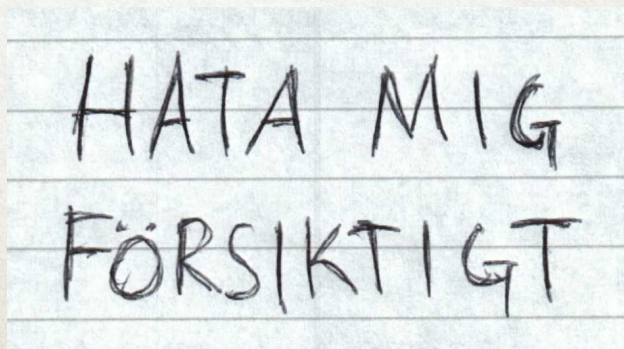 HATA MIG
FÖRSIKTIGT